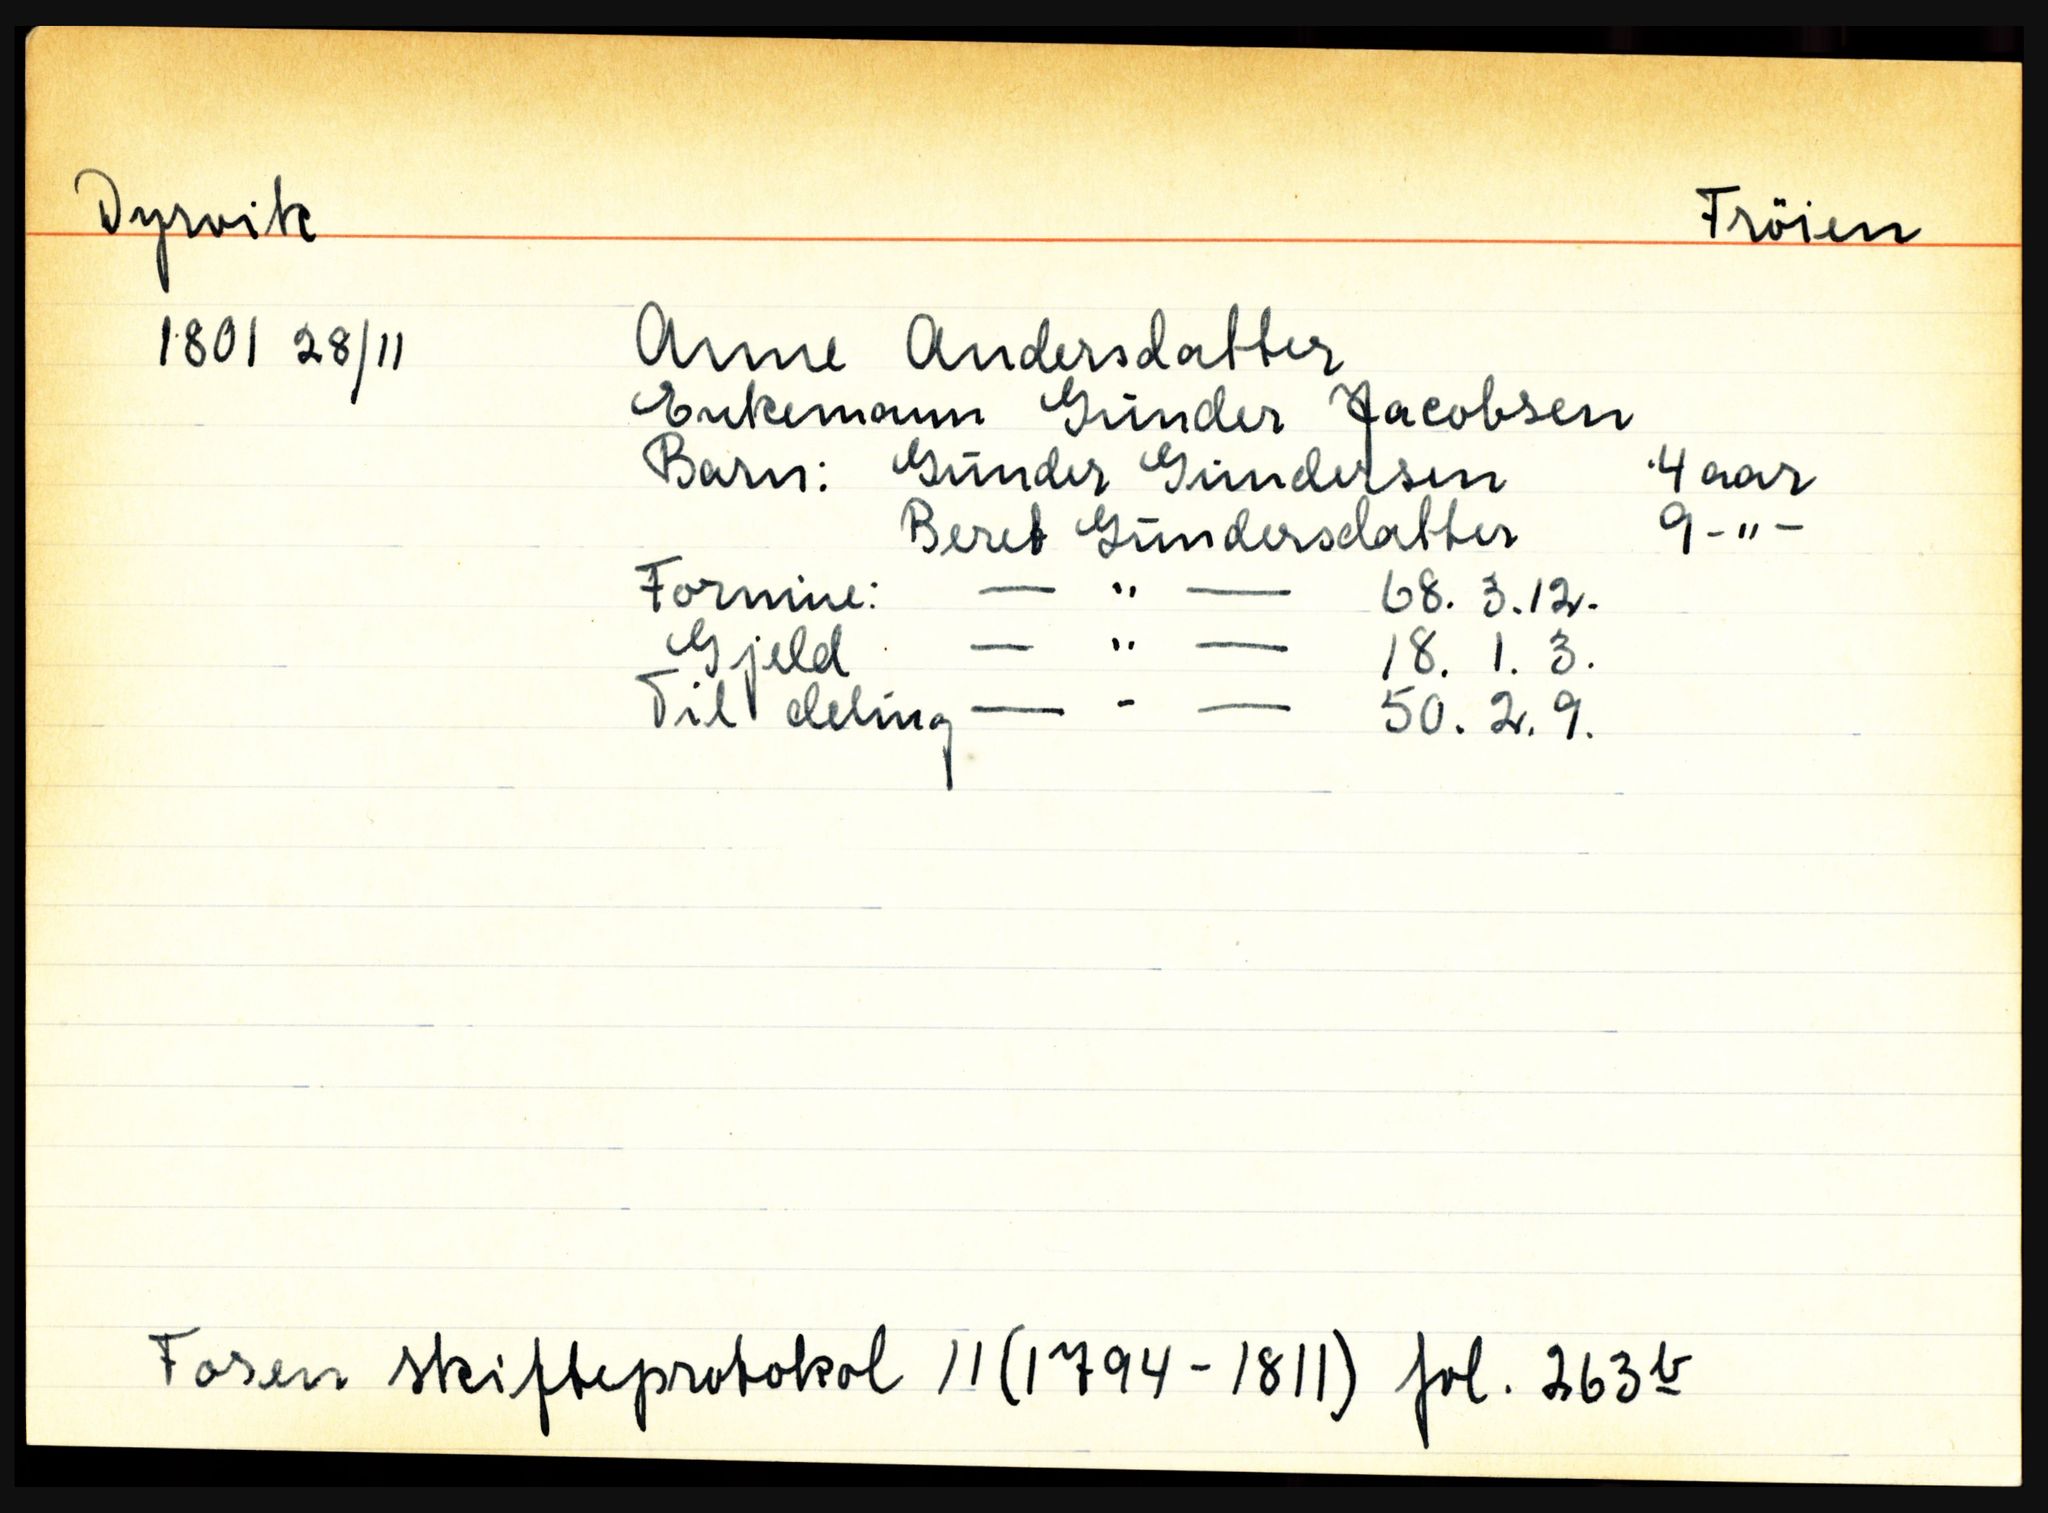 Dyrvik Fröien
1801 28/11 Anne Andersdatter
Enkemann Gunder Jacobsen
Barn: Gunder Gundersen 4 aar
Beret Gundersdatter 9 - " -
Formue: — " — 68. 3. 12.
Gjeld — " — 18. 1. 3.
Til deling — - — 50. 2. 9.
Fosen skifteprotokol 11 (1794-1811) fol. 263b